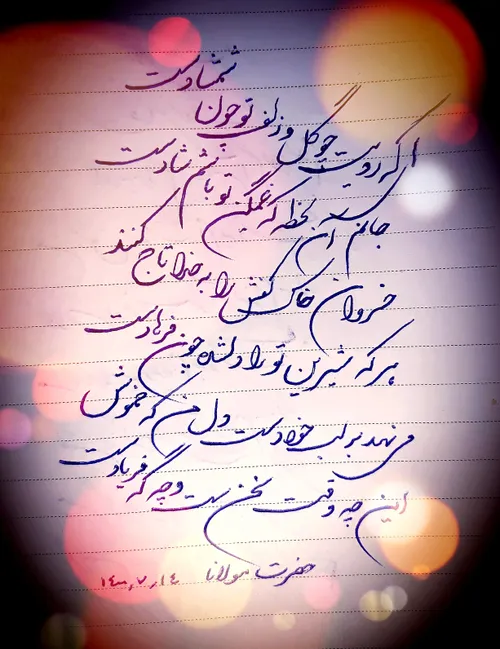 ای که رویت چو گل و زلف تو چون شمشادست
جانم آن لحظه که غمگین تو باشم شادست
خسروان خاک کفش را به خدا تاج کنند
هر که شیرین تو را دلشده چون فرهادست
می نهد بر لب خود دست دل من که خموش
این چه وقت سخن ست و چه گه فریادست
حضرت مولانا